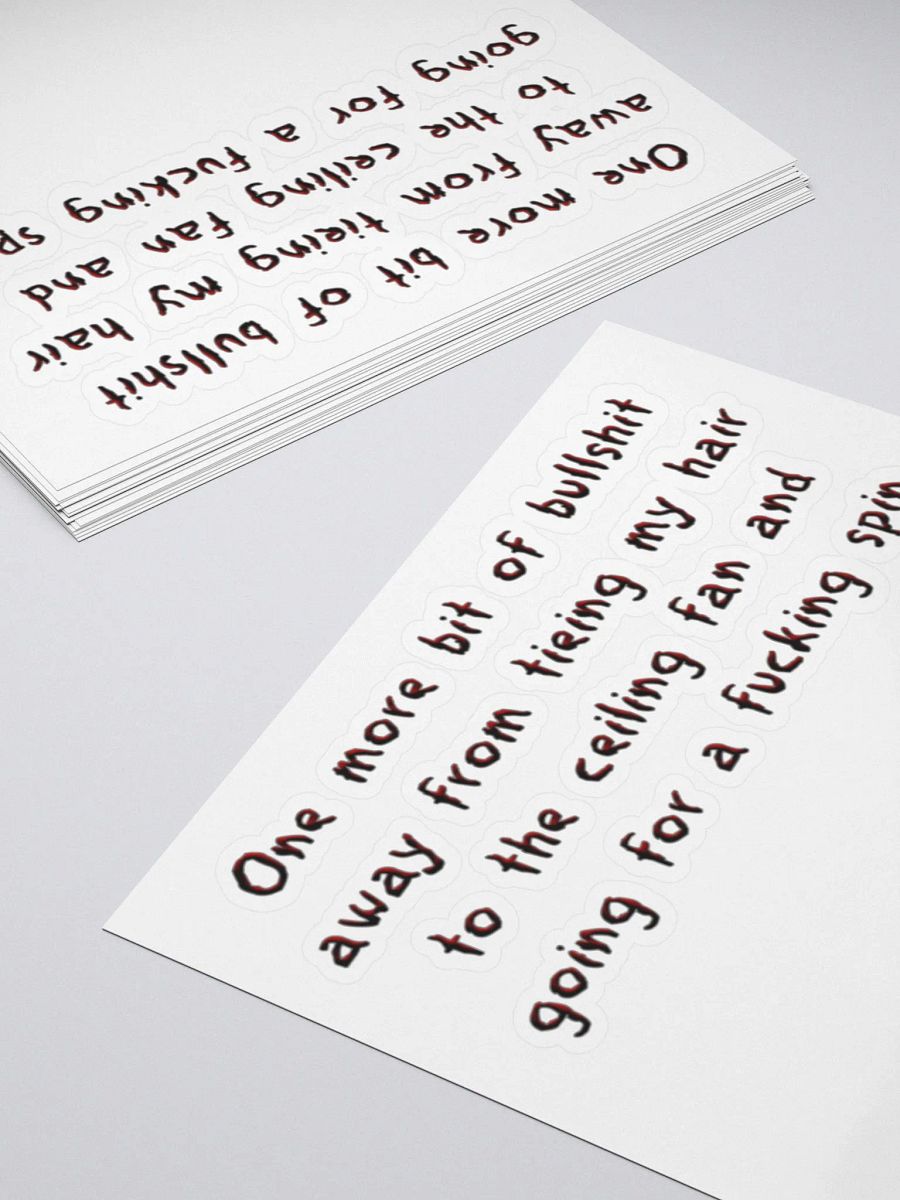 going for a fucking sp
to the ceiling fan and
away from tieing my hair
One more bit of bullshit
One more bit of bullshit
away from tieing my hair
to the ceiling fan and
going for a fucking spin